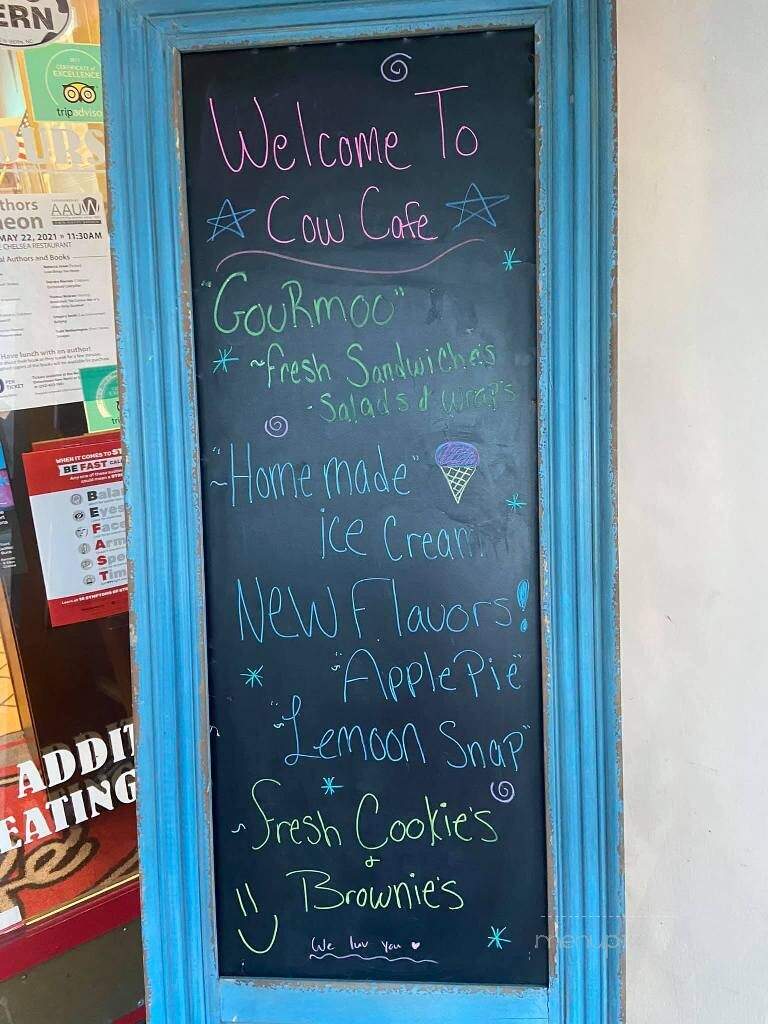 ERN
CERTIFICATE of
EXCELLENCE
tripadviso
OURS
thors
AAUW
eon
MAY 22, 2021 » 11:30AM
CHELSEA RESTAURANT
al Authors and Books
Have lunch with an author!
PER
TICKET
WHEN IT COMES TO ST
BE FAST
Balan
Eyes
Face
Arm
Spe
Tim
ADDIT
EATING
Welcome To
Cow Cafe
"GouRmoo"
~Fresh Sandwiche's
-Salads & wrap's
~"Home made"
ice Cream
New Flavors!
"Apple Pie"
"Lemoon Snap"
~Fresh Cookie's
&
Brownie's
We luv you ♥
menupi